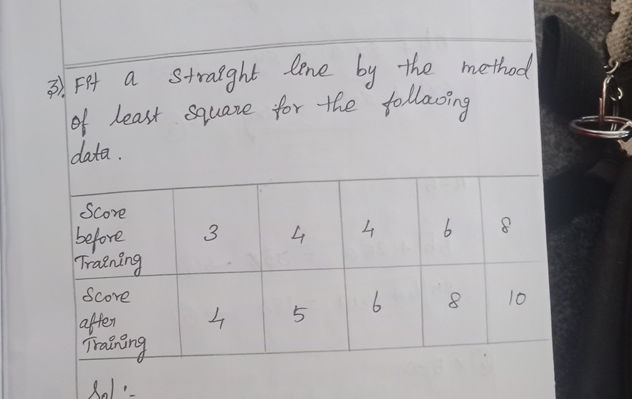 3). Fit a straight line by the method
of least square for the following
data.
Score before Training 3 4 4 6 8
Score after Training 4 5 6 8 10
Sol :-